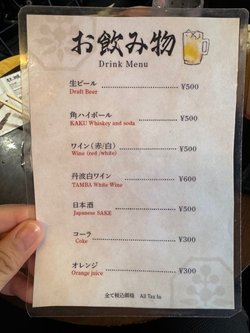 お飲み物
Drink Menu
生ビール ¥500
Draft Beer
角ハイボール ¥500
KAKU Whiskey and soda
ワイン(赤/白) ¥500
Wine (red /white)
丹波白ワイン ¥600
TAMBA White Wine
日本酒 ¥500
Japanese SAKE
コーラ ¥300
Coke
オレンジ ¥300
Orange juice
全て税込価格 All Tax In